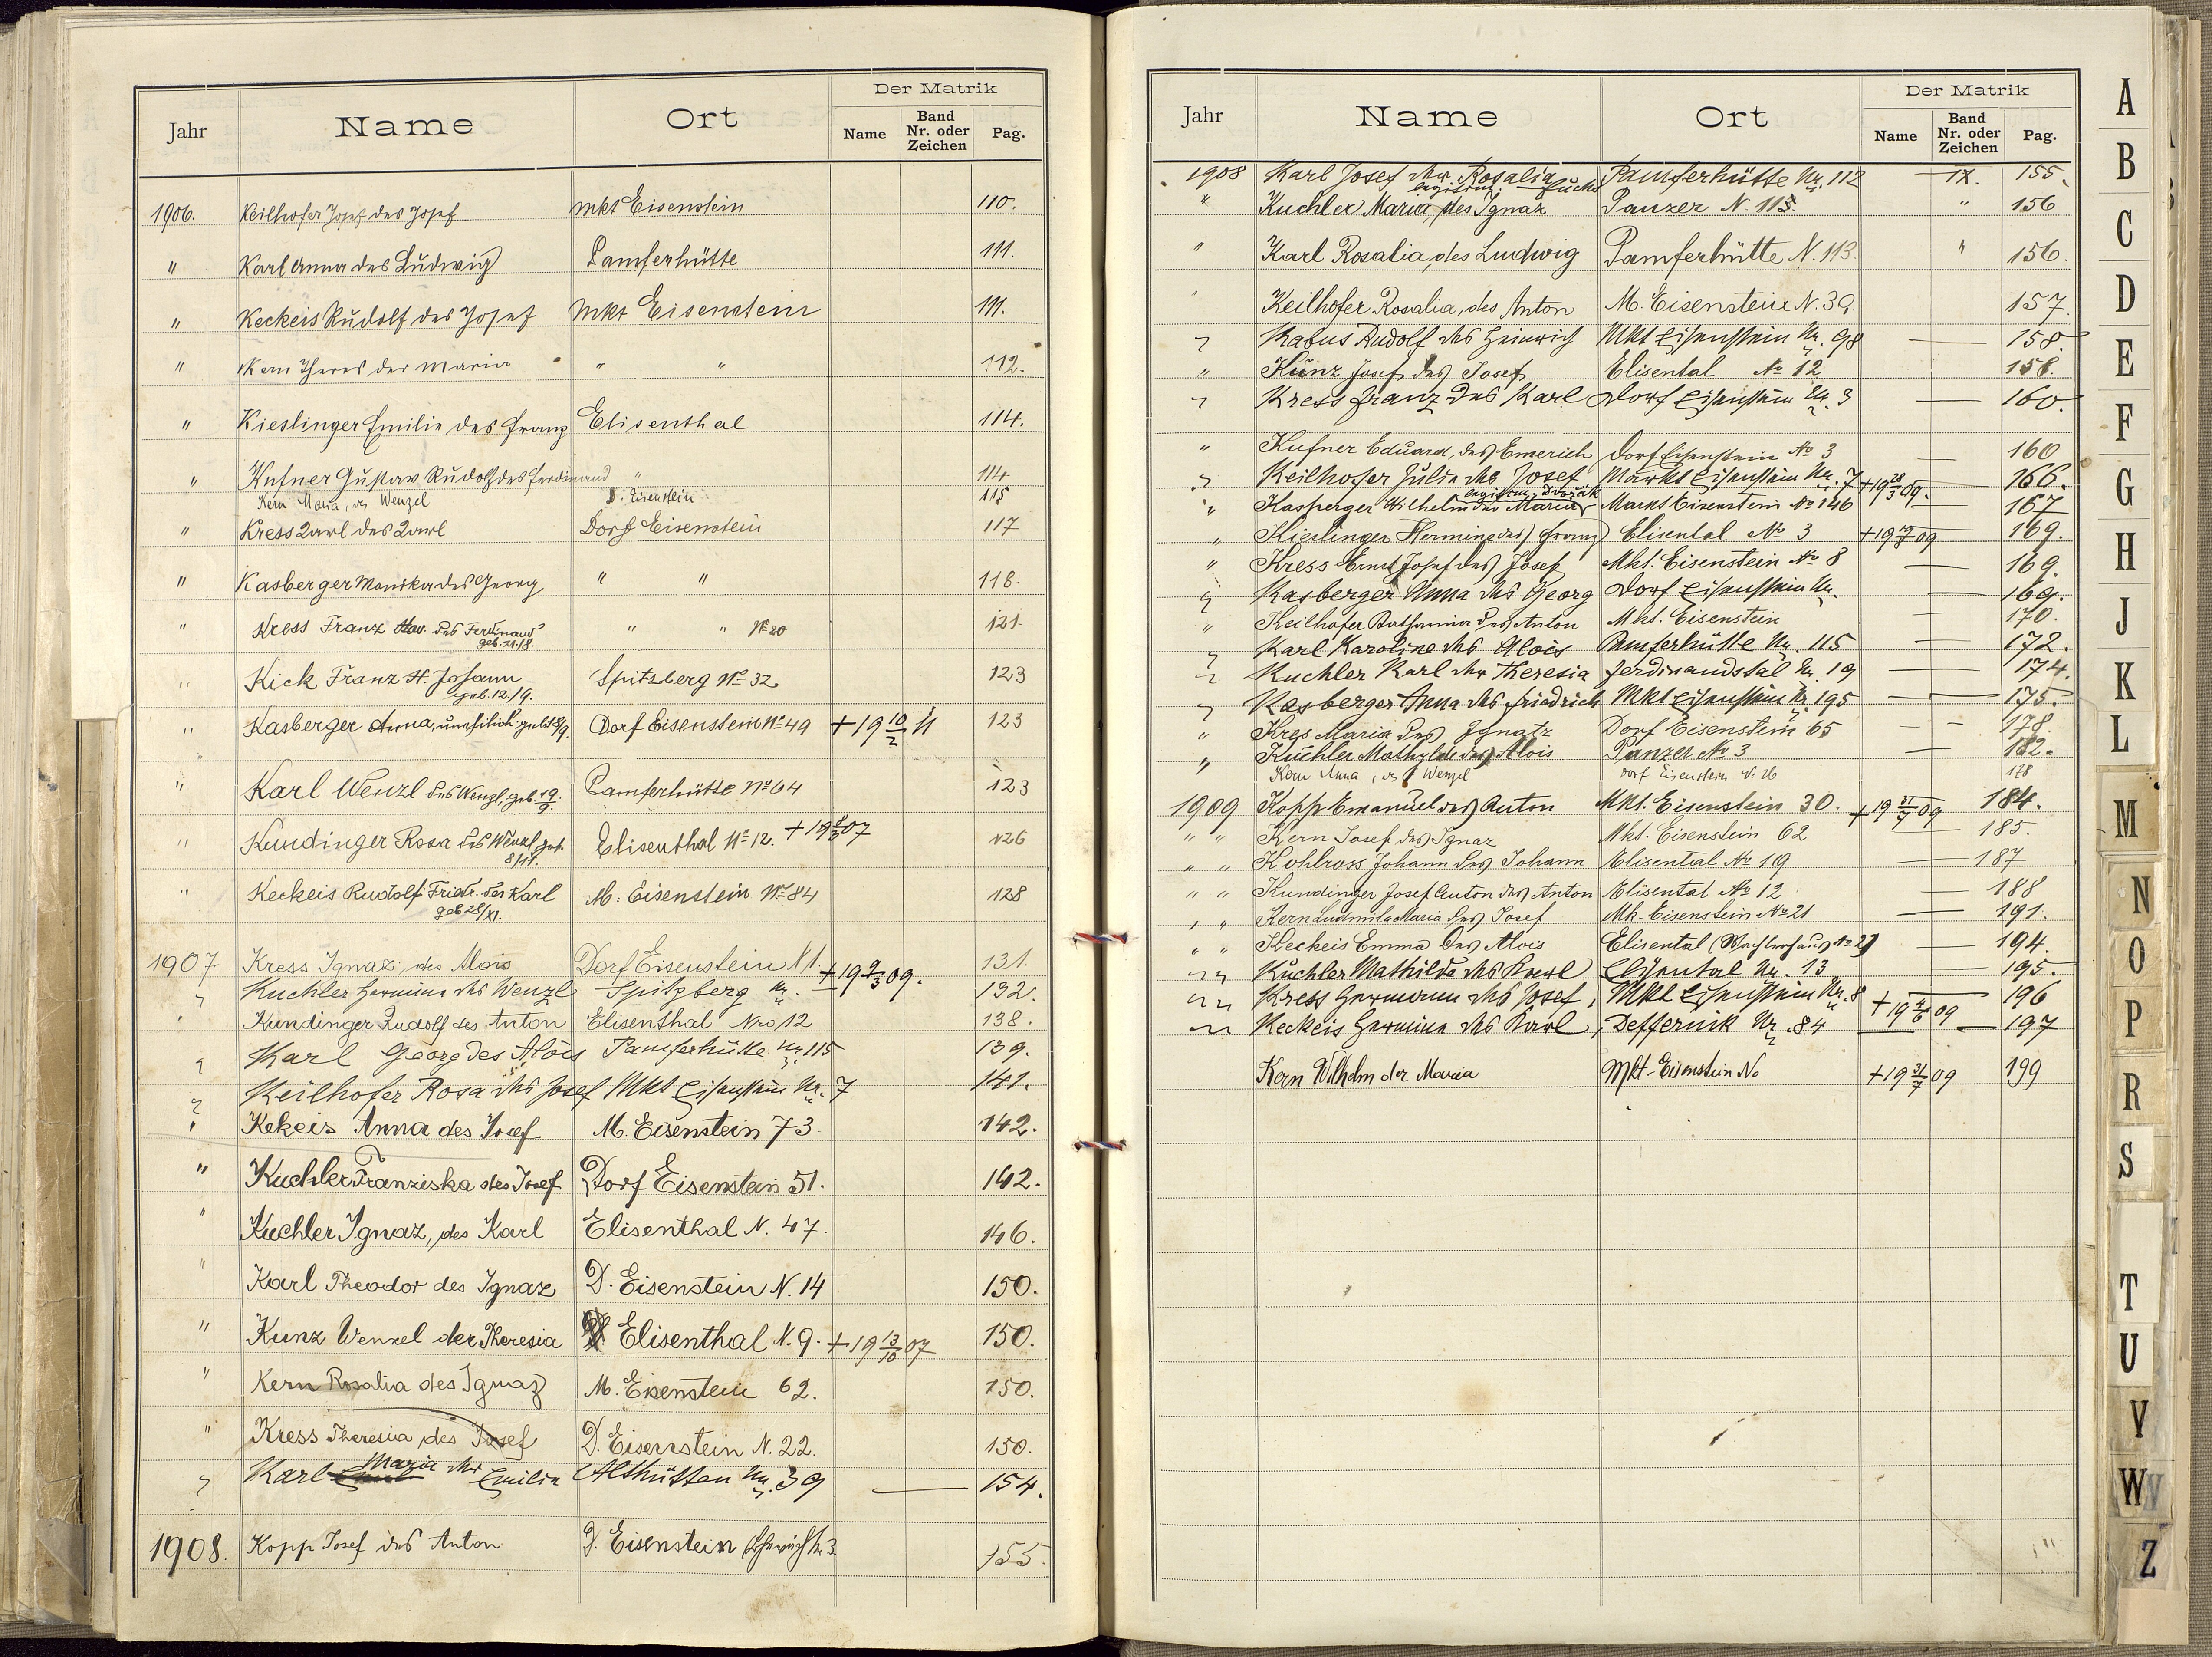 Der Matrik
Jahr Name Ort Name Band Nr. oder Zeichen Pag.
1906. Keilhofer Josef des Josef Mkt Eisenstein 110.
" Karl Anna des Ludwig Pamferhütte 111.
" Keckeis Rudolf des Josef Mkt Eisenstein 111.
" Kern Theres der Maria " " 112.
" Kieslinger Emilie des Franz Elisenthal 114.
" Kufner Gustav Rudolf des Ferdinand " 114
Kern Maria, des Wenzel D. Eisenstein 115
" Kress Karl des Karl Dorf Eisenstein 117
" Kasberger Monika des Georg " " 118.
" Kress Franz des Ferdinand " " No 20 121.
geb. 21./8.
" Kick Franz d. Johann Spitzberg No 32 123
geb. 12./9.
" Kasberger Anna, unehelich geb. 18/9. Dorf Eisenstein No 49 + 19 10/2 11 123
" Karl Wenzl des Wenzl, geb. 19/9. Pamferhütte No 64 123
" Kundinger Rosa des Wenzl, geb. Elisenthal No 12. + 19 07 126
8/11.
" Keckeis Rudolf Fridr. des Karl M. Eisenstein No 84 128
geb 28/XI.
1907 Kress Ignaz des Alois Dorf Eisenstein N 1. + 19 9/3 09. 131.
" Kuchler Hermine des Wenzl Spitzberg Nr. 132.
" Kundinger Rudolf des Anton Elisenthal Nro 12 138.
" Karl Georg des Alois Pamferhütte Nr 115 139.
" Keilhofer Rosa des Josef Mkt Eisenstein Nr. 7 141.
" Kekeis Anna des Josef M. Eisenstein 73. 142.
" Kuchler Franziska des Josef Dorf Eisenstein 51. 142.
" Kuchler Ignaz, des Karl Elisenthal N. 47. 146.
" Karl Theodor des Ignaz D. Eisenstein N. 14 150.
" Kunz Wenzel der Theresia Elisenthal N. 9. + 19 13/10 07 150.
" Kern Rosalia des Ignaz M. Eisenstein 62. 150.
" Kress Theresia des Josef D. Eisenstein N. 22. 150.
" Karl Maria der Emilie Althütten Nr. 39 — 154.
1908. Kopp Josef des Anton D. Eisenstein 155.
Der Matrik
Jahr Name Ort Name Band Nr. oder Zeichen Pag.
1908 Karl Josef der Rosalia Pamferhütte Nr. 112 IX. 155.
legitim. Fuchs
" Kuchler Maria, des Ignaz Panzer N. 115. " 156
" Karl Rosalia, des Ludwig Pamferhütte N. 113. " 156.
" Keilhofer Rosalia, des Anton M. Eisenstein N. 39. 157
" Kabus Rudolf des Heinrich Mkt Eisenstein Nr. 98 — 158.
" Kunz Josef des Josef Elisental No 12 — 158.
" Kress Franz des Karl Dorf Eisenstein Nr. 3 — 160.
" Kufner Eduard, des Emerich Dorf Eisenstein No 3 — 160
" Keilhofer Julie des Josef Markt Eisenstein Nr. 7 + 19 28/3 09. — 166.
legitim. Dvořák
" Kasperger Wilhelm der Maria Markt Eisenstein No 146 — 167
" Kieslinger Hermine des Franz Elisental No 3 + 19 09 — 169.
" Kress Ernst Josef des Josef Mkt. Eisenstein No 8 — 169.
" Kasberger Anna des Georg Dorf Eisenstein Nr. — 169.
" Keilhofer Katharina des Anton Mkt. Eisenstein — 170.
" Karl Karoline des Alois Pamferhütte Nr. 115 — 172.
" Kuchler Karl der Theresia Ferdinandstal Nr. 19 — 174.
" Kasberger Anna des Friedrich Mkt Eisenstein Nr 195 — 175.
" Kres Maria des Ignatz Dorf Eisenstein 65 — — 178.
" Küchler Mathylde des Alois Panzer No 3 — 182.
Kern Anna, des Wenzel Dorf Eisenstein N. 26 178
1909 Kopp Emanuel des Anton Mkt. Eisenstein 30. + 19 31/7 09 184.
" " Kern Josef des Ignaz Mkt. Eisenstein 62 — 185.
" " Kohlross Johann des Johann Elisental No 19 — 187
" " Kundinger Josef Anton des Anton Elisental No 12 — 188
" " Kern Ludmila Maria des Josef Mk. Eisenstein No 21 — 191.
" " Keckeis Emma des Alois Elisental — 194.
" " Küchler Mathilde des Karl Elisental Nr. 13 — 195.
" " Kress Hermann des Josef, Mkt Eisenstein Nr. 8 + 19 4/6 09 196
" " Keckeis Hermine des Karl, Deffernik Nr. 84 — 197
Kern Wilhelm der Maria Mkt-Eisenstein No + 19 31/7 09 199
A
B
C
D
E
F
G
H
J
K
L
M
N
O
P
R
S
T
U
V
W
Z